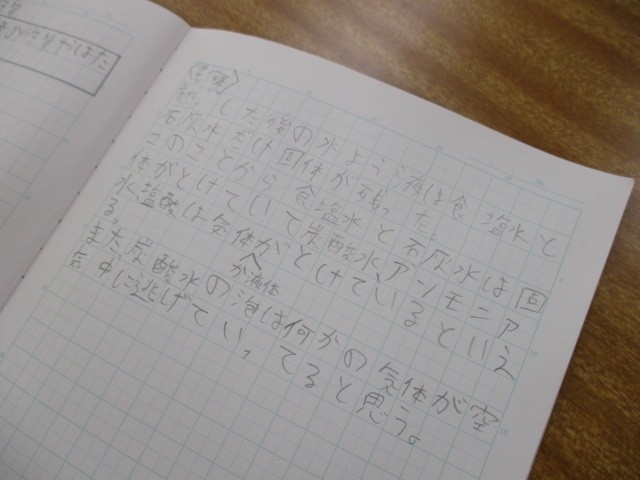 した後の水よう液は食塩水と
石灰水だけ固体が残った。
このことから食塩水と石灰水は固
体がとけていて炭酸水、アンモニア
水、塩酸は気体がとけているといえ
る。
また、炭酸水の泡は何かの気体が空
が液体
気中に逃げていってると思う。